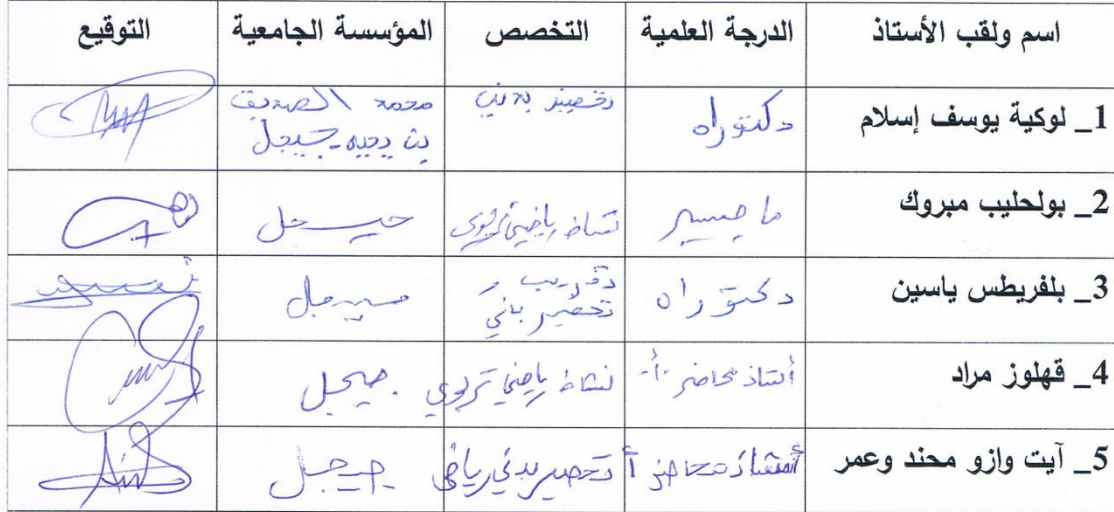 اسم ولقب الأستاذ الدرجة العلمية التخصص المؤسسة الجامعية التوقيع
1_ لوكية يوسف إسلام دكتوراه تحضير بدني محمد الصديق
بن يحيى جيجل
2_ بولحليب مبروك ماجستير نشاط رياضي تربوي جيجل
3_ بلفريطس ياسين دكتوراه تدريب و
تحضير بدني جيجل
4_ قهلوز مراد أستاذ محاضر -أ- نشاط رياضي تربوي جيجل
5_ آيت وازو محند وعمر أستاذ محاضر أ تحضير بدني رياضي جيجل